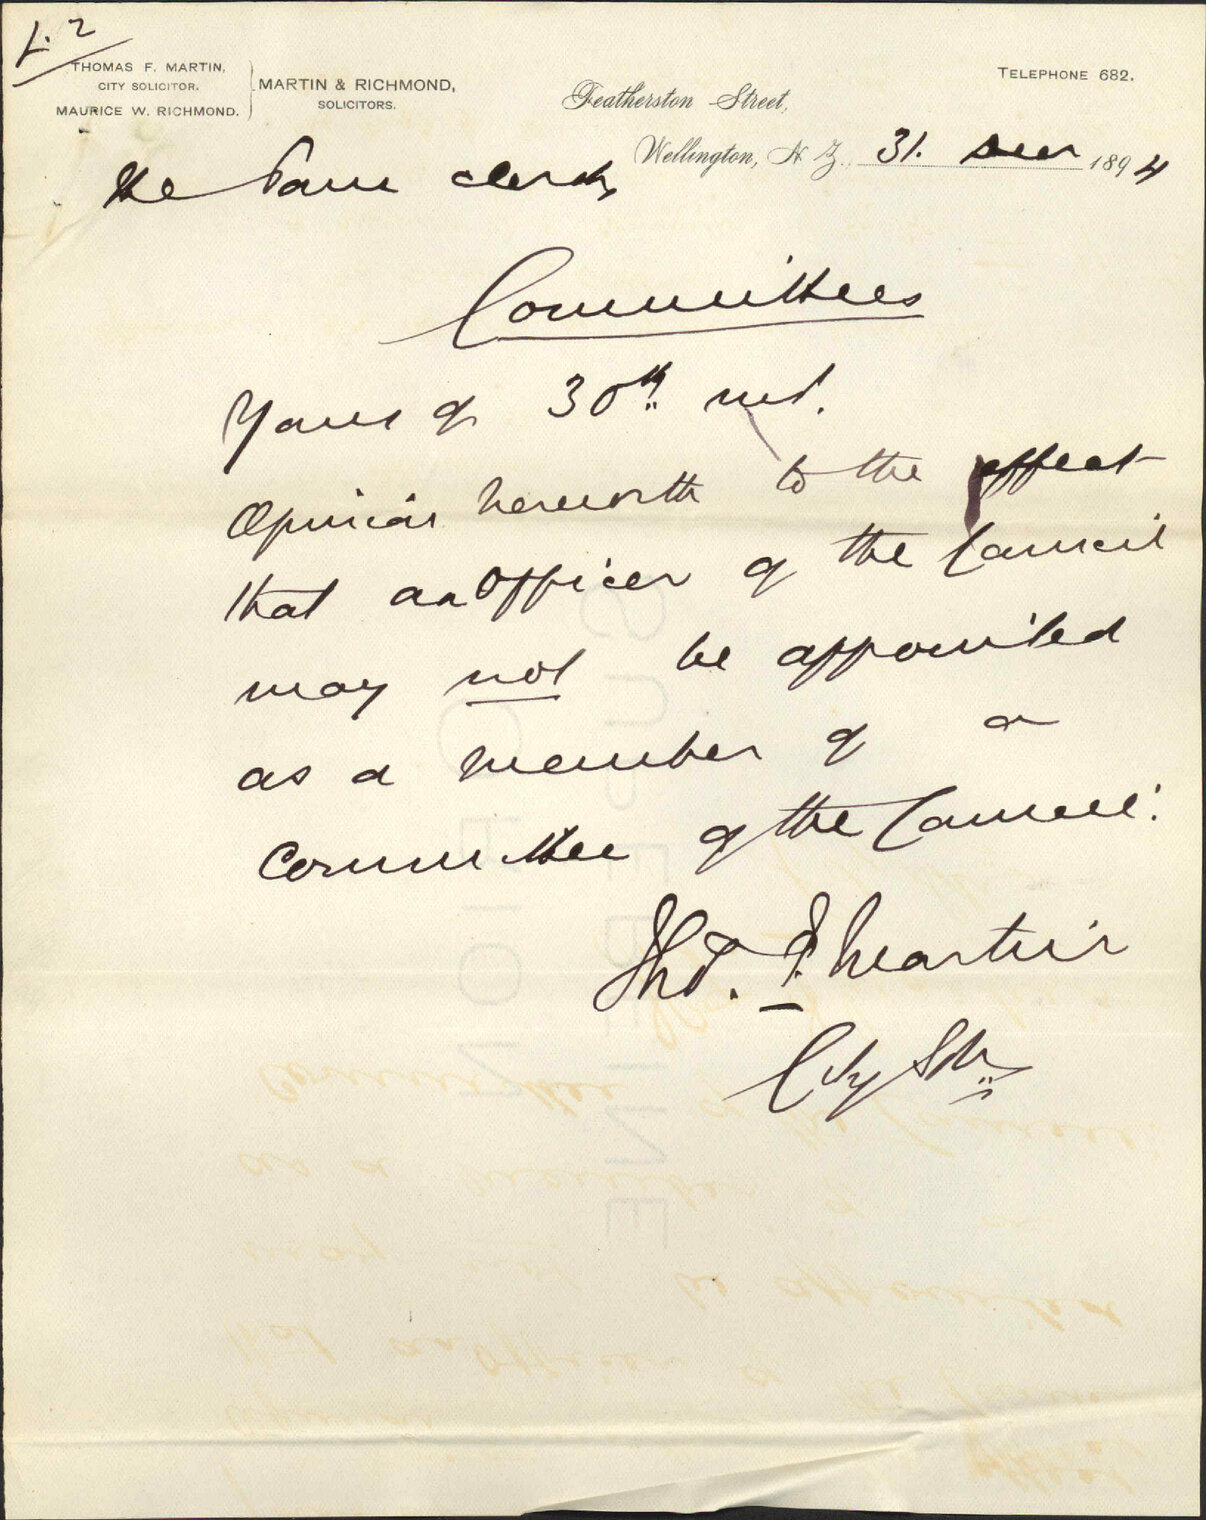 L. 2
THOMAS F. MARTIN,
CITY SOLICITOR.
MAURICE W. RICHMOND.
MARTIN & RICHMOND,
SOLICITORS.
TELEPHONE 682.
Featherston Street,
Wellington, N.Z. 31. 1894
The Town Clerk
Committees
Yours of 30th inst.
Opinion herewith to the effect
that an Officer of the Council
may not be appointed
as a member of a
Committee of the Council.
Tho.s F. Martin
City Solr
SUPERFINE